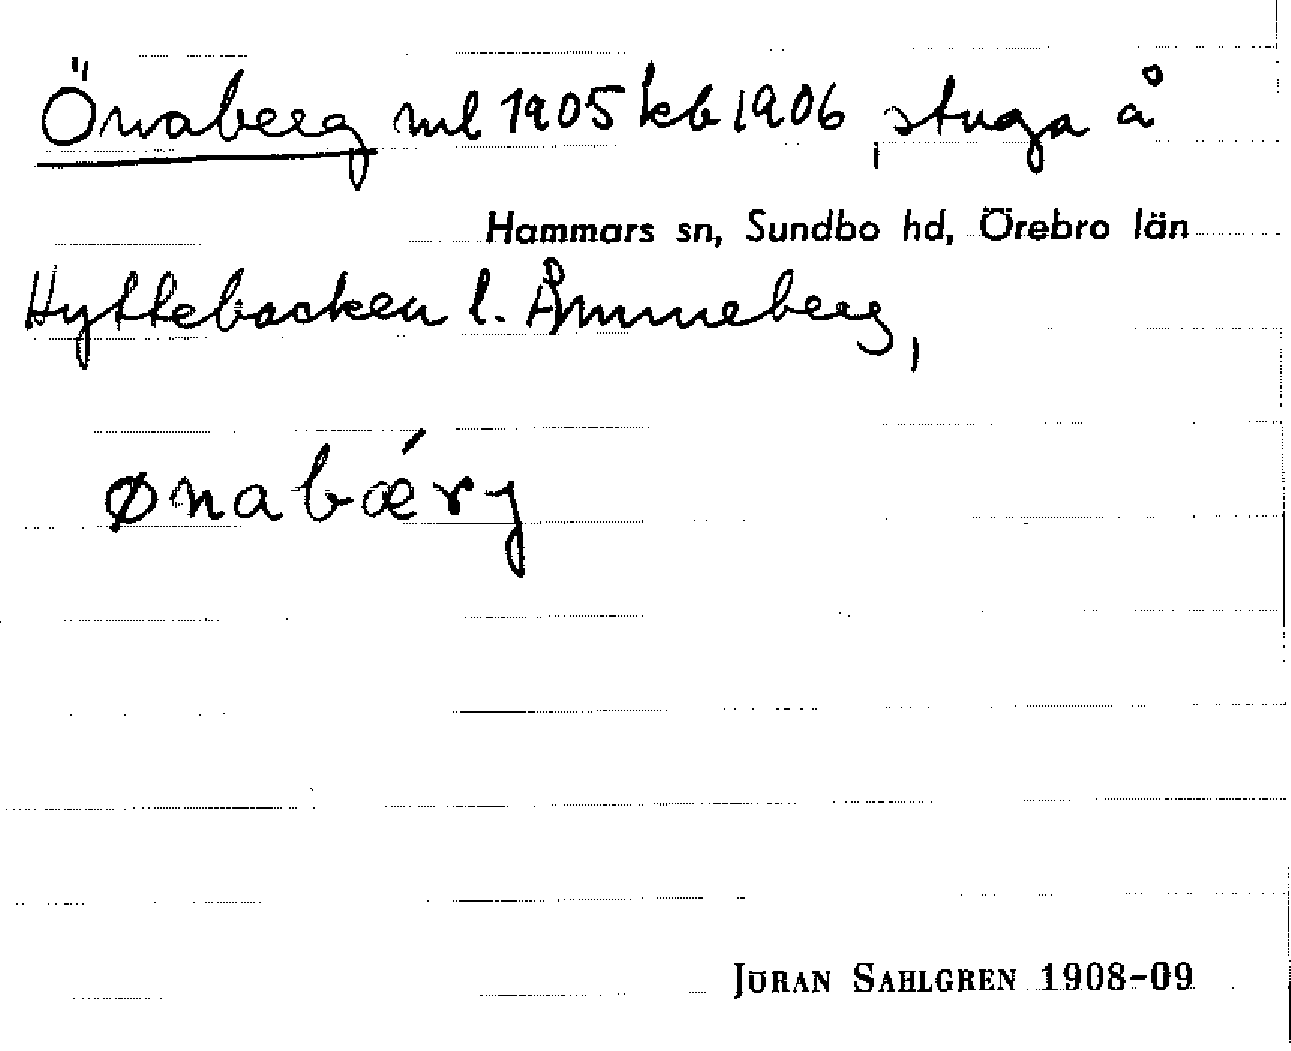 Önaberg ml 1905 kb 1906, stuga å
Hammars sn, Sundbo hd, Örebro län
Hyttebacken l. Åmmeberg,
ønabǽrg
JÖRAN SAHLGREN 1908-09